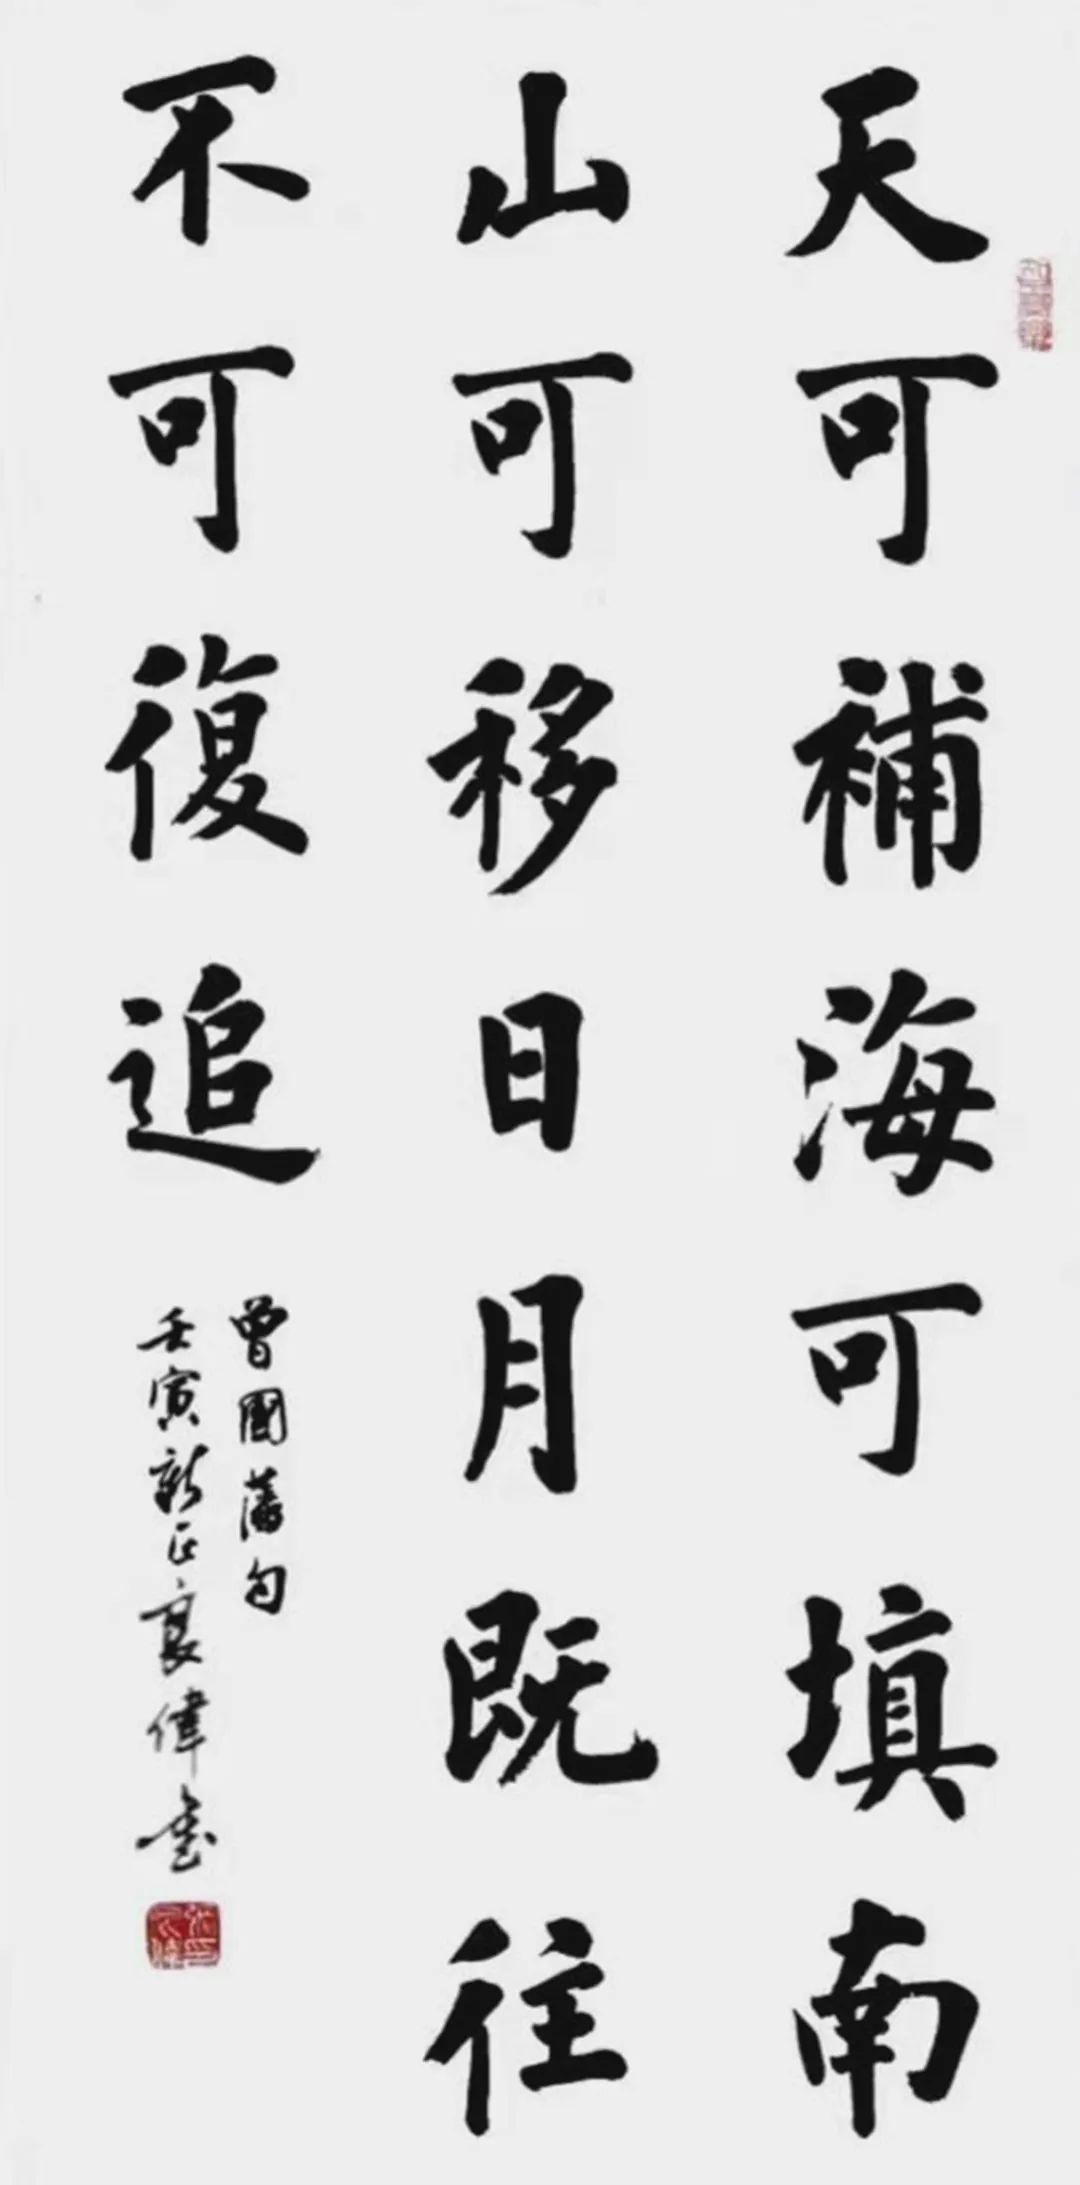 天可補海可填南
山可移日月既往
不可復追
曾國藩句
壬寅新正良偉書